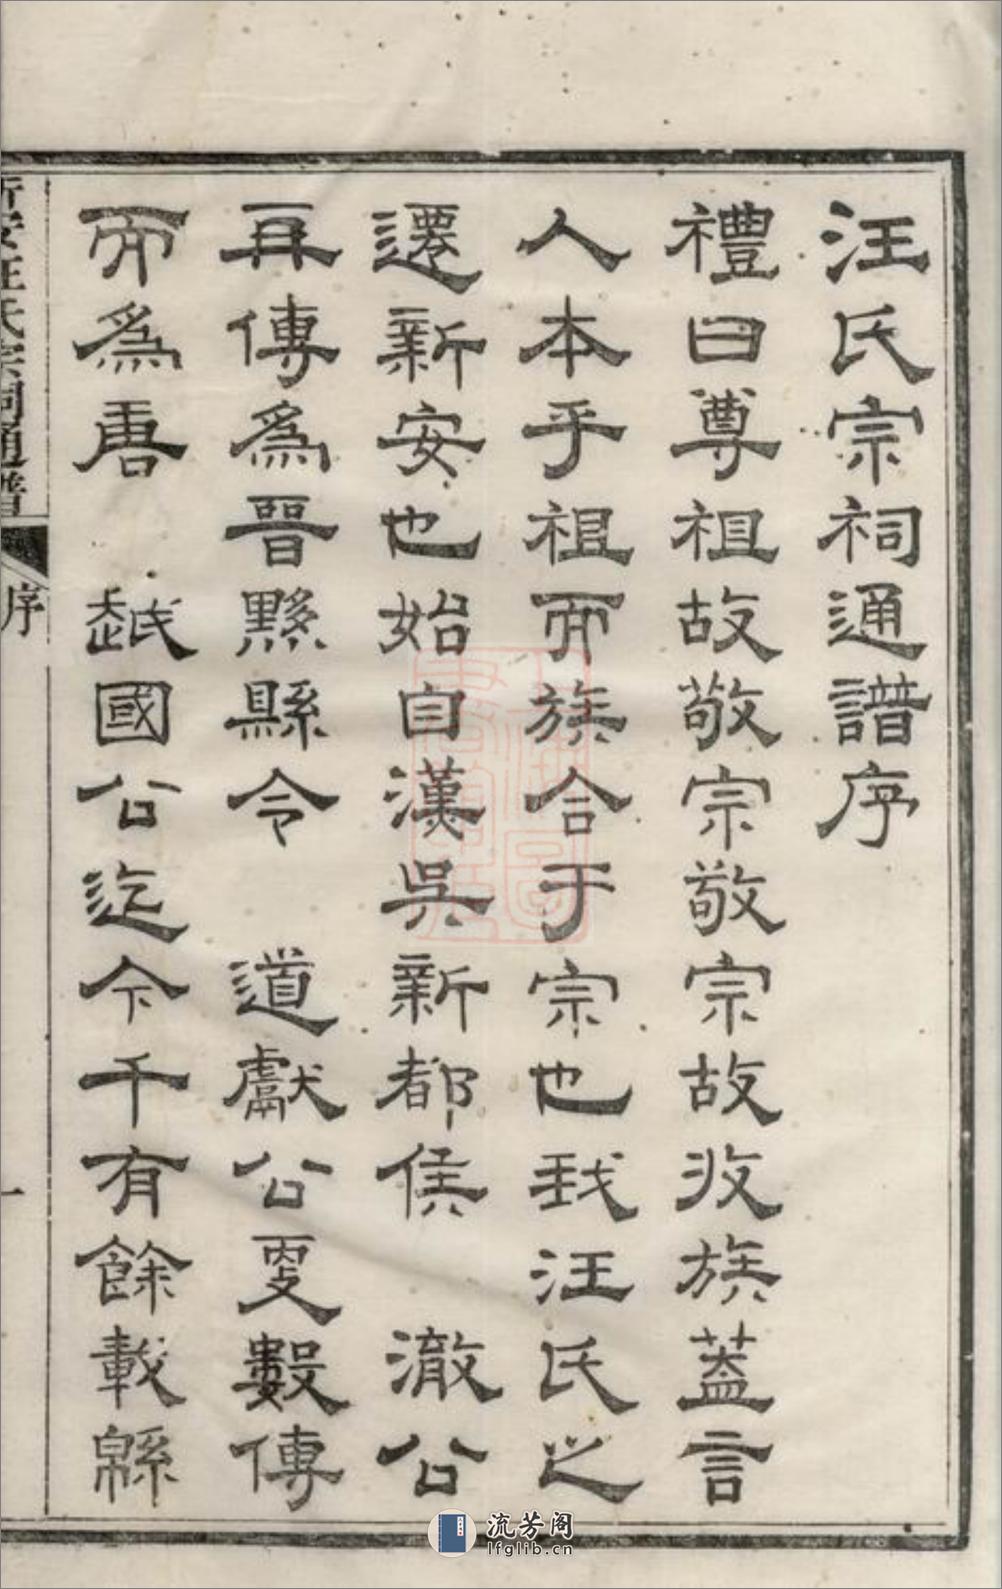 汪氏宗祠通譜序
禮曰尊祖故敬宗敬宗故收族蓋言
人本乎祖而族合于宗也我汪氏之
遷新安也始自漢吳新都侯　澈公
再傳為晉黟縣令　道獻公更數傳
而為唐　越國公迄今千有餘載緜
新安汪氏宗祠通譜
序
一
流芳阁
lfglib.cn